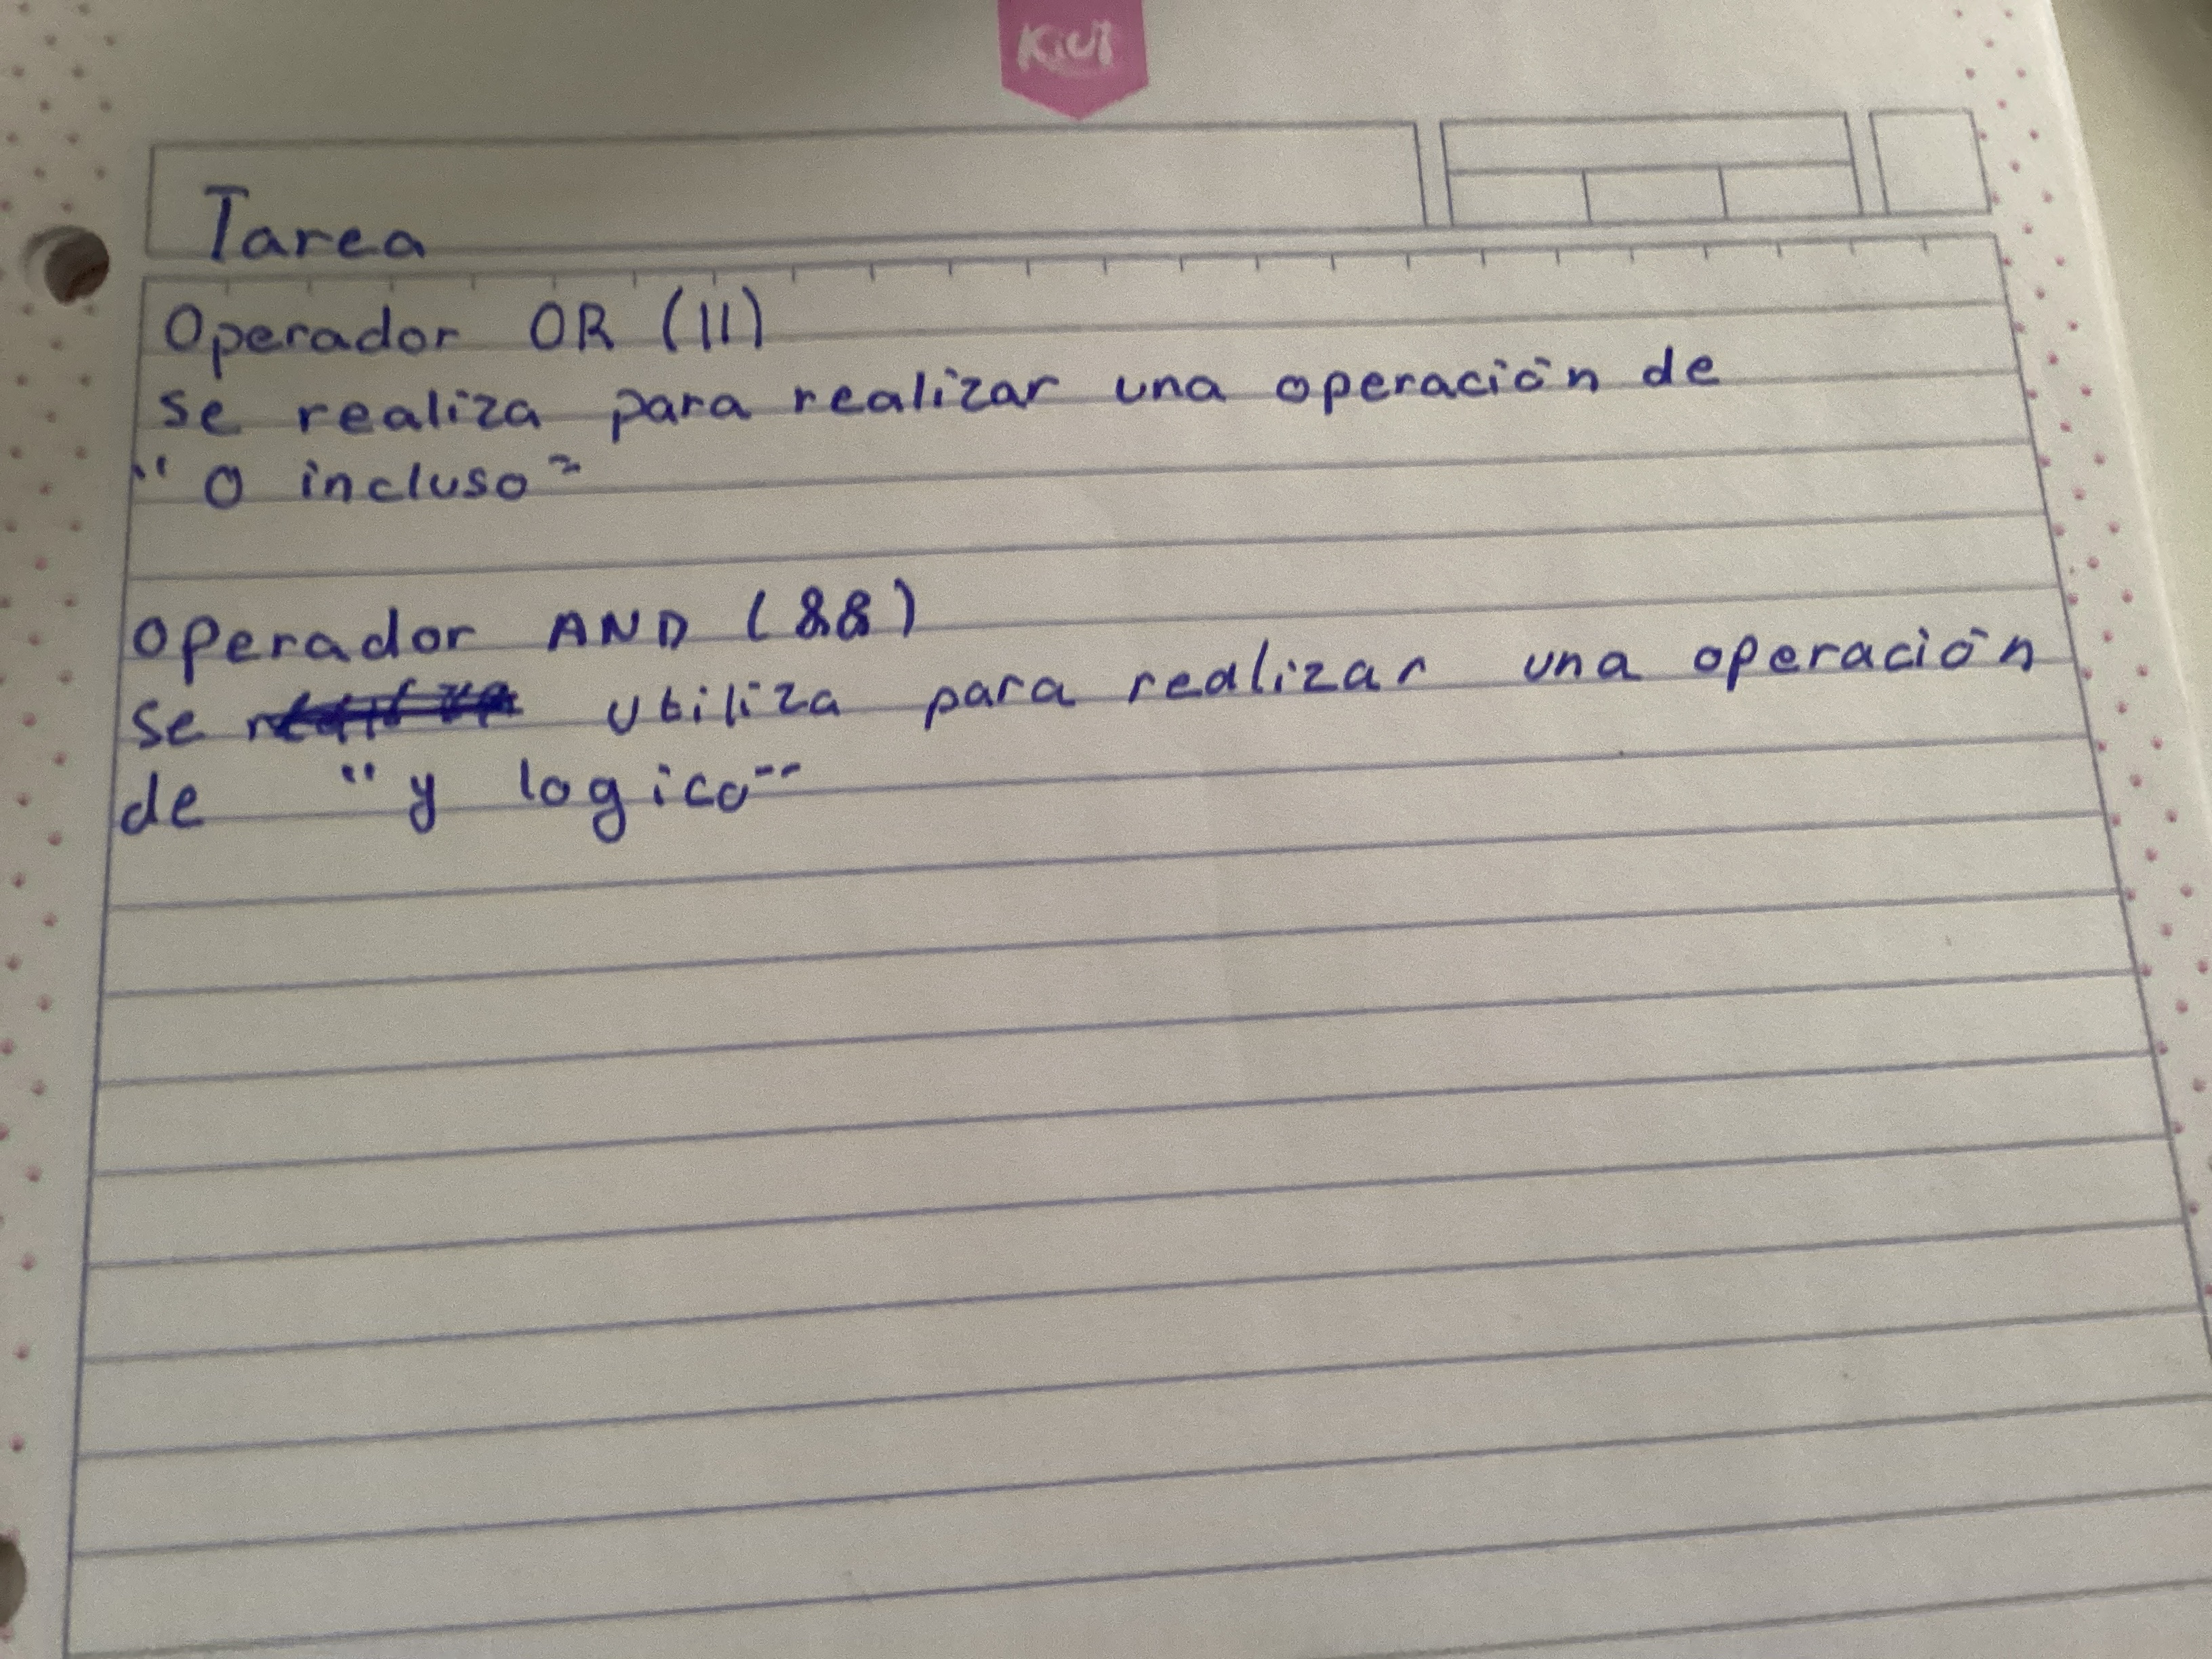 Kiut
Tarea
Operador OR (||)
se realiza para realizar una operación de
"O incluso"
Operador AND (&&)
se utiliza para realizar una operación
de "y logico"